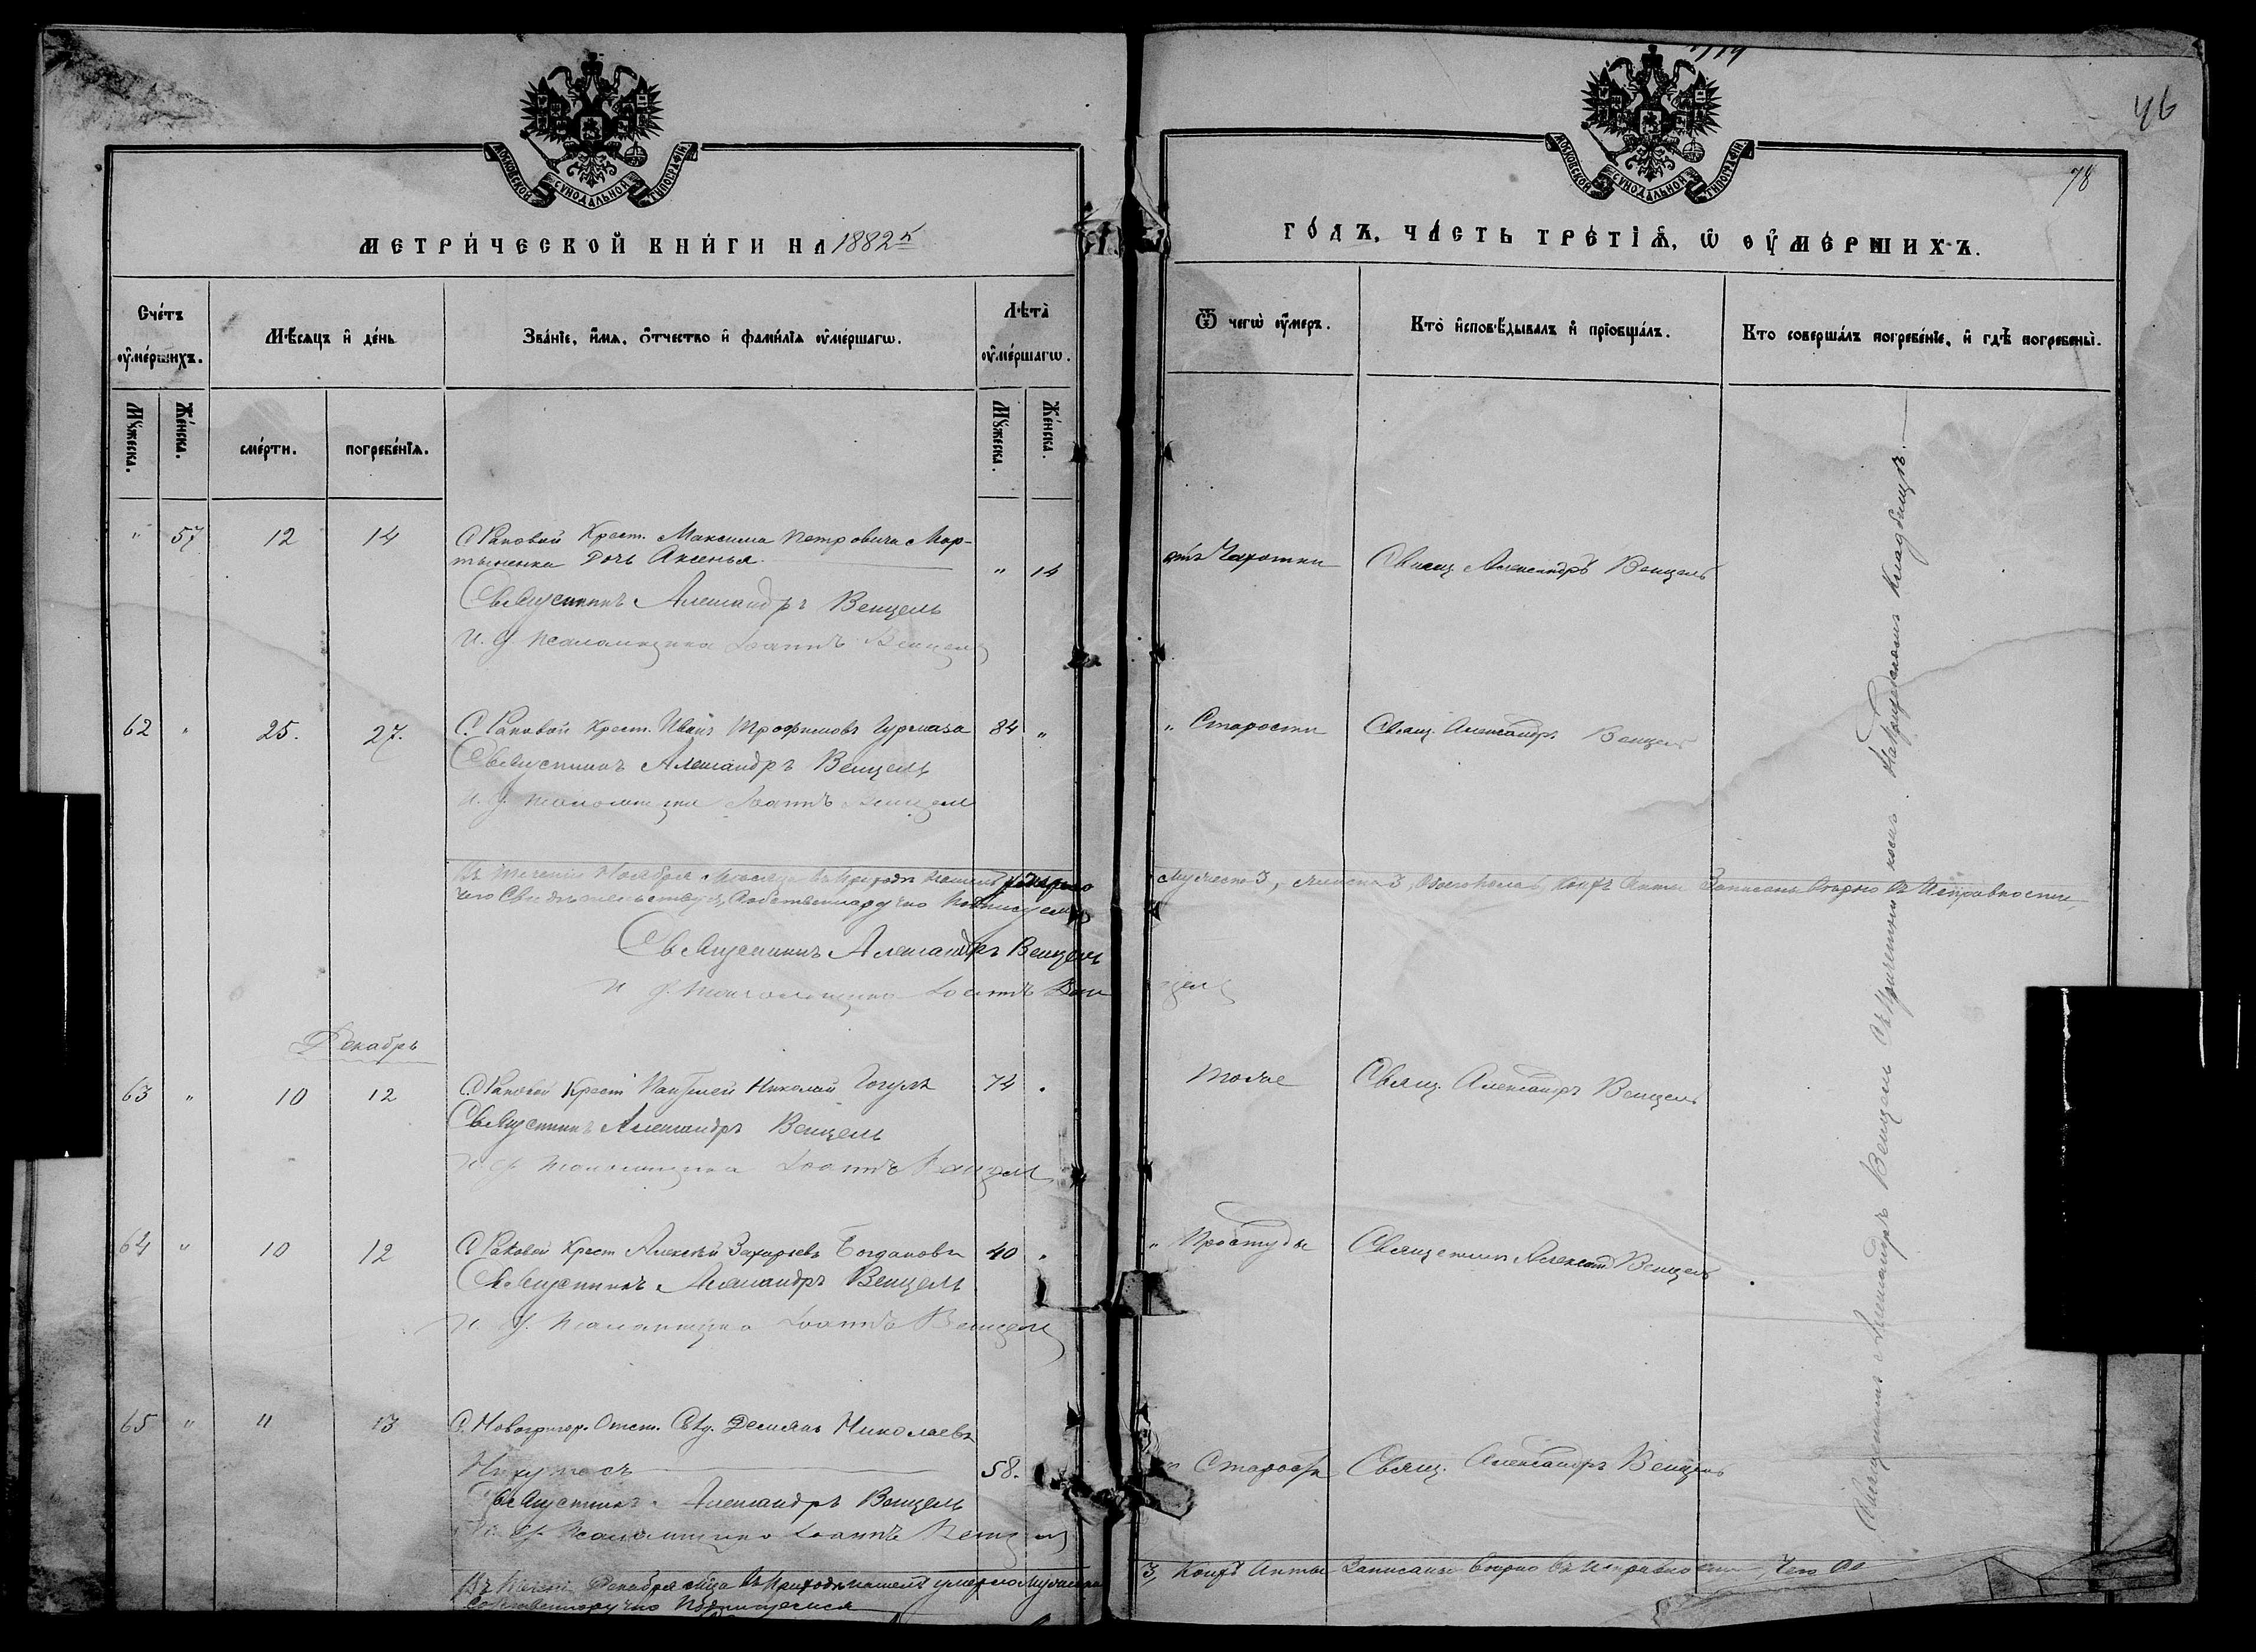 МОСКОВСКОЙ СУНОДАЛЬНОЙ ТИПОГРАФІИ
МЕТРИЧЕСКОЙ КНИГИ НА 1882й
Счетъ ѹмершихъ.
Мѣсяцъ и день
Званіе, имя, отчество и фамилія ѹмершагѡ.
Лѣта ѹмершагѡ.
Мѹжеска.
Женска.
смерти.
погребенія.
Мѹжеска.
Женска.
" 57 12 14 С. Раковой Крест. Максима Петровича Мар-
тыненка дочь Аксенья. " 14
Священникъ Александръ Венцель
И. д. псаломщика Іоаннъ Венцель
62 " 25. 27. С. Раковой Крест. Иванъ Трофимовъ Гурмаза 84 "
Священникъ Александръ Венцель
И. д. псаломщика Іоаннъ Венцель
Въ теченіи Ноября мѣсяца въ приходѣ нашемъ умерло
чего свидѣтельствуемъ собственноручно подписуемся
Священникъ Александръ Венцель
И д. псаломщика Іоаннъ Вен
Декабрь
63 " 10 12 С. Раковой Крест Николай 74 "
Священникъ Александръ Венцель
И д. псаломщика Іоаннъ Венцель
64 " 10 12 С. Раковой Крест Алексѣй Захарьевъ Богдановъ 40 "
Священникъ Александръ Венцель
И. д. псаломщика Іоаннъ Венцель
65 " 11 13 С. Новогригор. Отст. Демьянъ Николаевъ
58.
Священникъ Александръ Венцель
И. д. псаломщика Іоаннъ Венцель
Декабря м-ца въ приходѣ нашемъ умерло мужеска
собственноручно подписуемся
46
78
МОСКОВСКОЙ СУНОДАЛЬНОЙ ТИПОГРАФІИ
ГОДЪ, ЧАСТЬ ТРЕТІЯ, Ѡ ОУМЕРШИХЪ.
Ѿ чегѡ ѹмеръ.
Кто исповѣдывалъ и пріобщалъ.
Кто совершалъ погребеніе, и гдѣ погребены.
отъ Чахотки Свящ Александръ Венцель
" Старости Свящ. Александръ Венцель
мужеска 3, женска 3, обоего пола 6, коихъ акты записаны вѣрно въ исправности,
цель
тоже Свящ. Александръ Венцель
" Простуды Священникъ Александ Венцель
" Старости Свящ. Александръ Венцель
3, коихъ акты записаны вѣрно въ исправности, чего
Священникъ Александръ Венцель съ причетникомъ. На приходскомъ кладбищѣ.